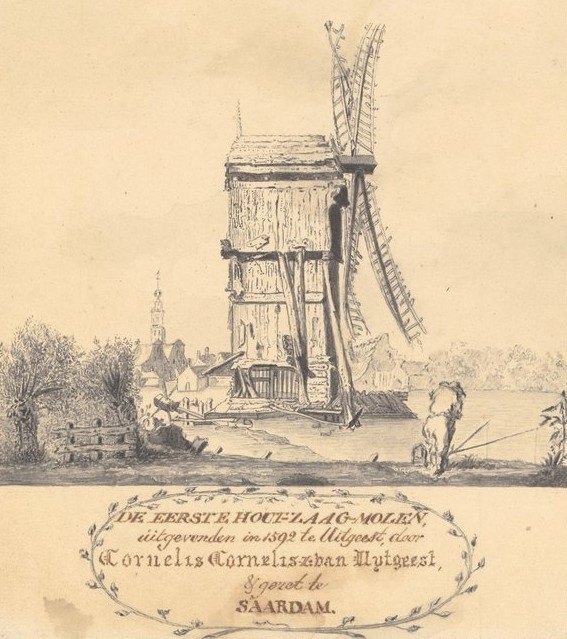 DE EERSTE HOUT-ZAAG-MOLEN,
uitgevonden in 1592 te Uitgeest, door
Cornelis Cornelisz van Uytgeest,
& gezet te
SAARDAM.